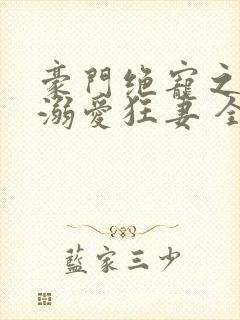 豪門绝寵之
溺愛狂妻全
藍家三少